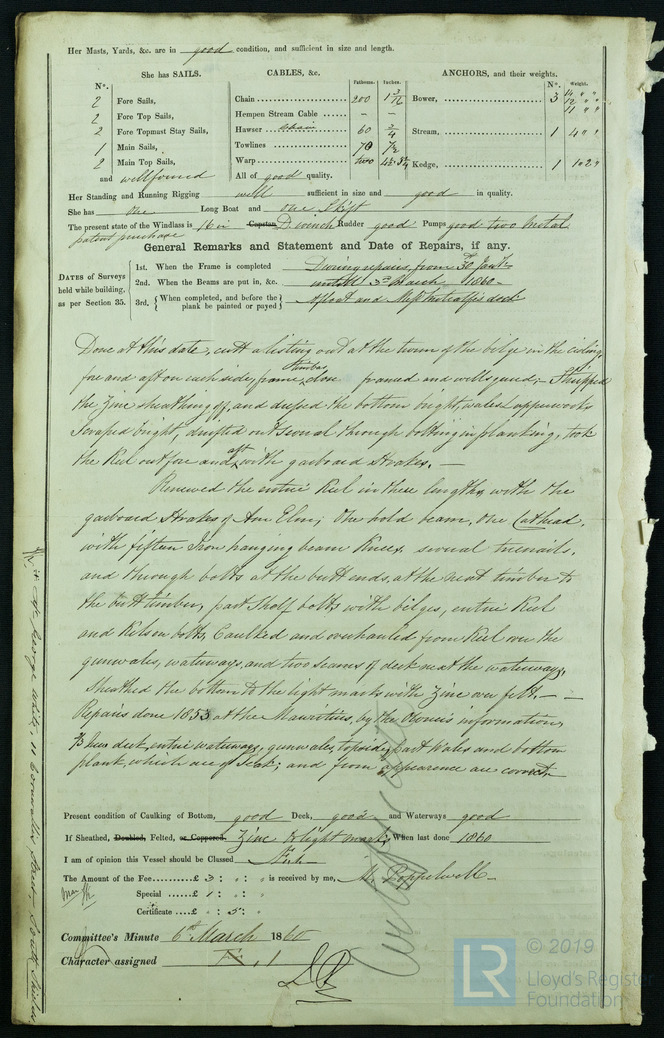 Her Masts, Yards, &c. are in good condition, and sufficient in size and length.
She has SAILS. CABLES, &c. ANCHORS, and their weights.
N°. Fathoms. Inches. N°. Weight.
2 Fore Sails, Chain 200 1 3/16 Bower, 3 14 " "
12 " "
11 " "
2 Fore Top Sails, Hempen Stream Cable - -
2 Fore Topmast Stay Sails, Hawser chain 60 3/4 Stream, 1 4 " "
1 Main Sails, Towlines 70 7½
2 Main Top Sails, Warp Kedge, 1
and well found All of good quality.
Her Standing and Running Rigging well sufficient in size and good in quality.
She has one Long Boat and one Skiff
The present state of the Windlass is Capstan D. winch Rudder good Pumps good two metal
patent purchase
General Remarks and Statement and Date of Repairs, if any.
DATES of Surveys held while building, as per Section 35.
1st. When the Frame is completed During repairs, from 30 Jany
2nd. When the Beams are put in, &c. untill 3rd March 1860
3rd. When completed, and before the plank be painted or payed Afloat and Messrs Metcalfes dock
Done at this date, cutt a listing out at the turn of the bilge in the ceiling,
fore and aft on each side, frame timbers done framed and well squared; - Stripped
the Zinc sheathing off, and dressed the bottom bright, wales & upperworks
Scraped bright, drifted out several through bolting in planking, took
the Keel out fore and aft with garboard strakes. —
Renewed the entire Keel in three lengths with the
garboard Strakes of Am Elm; One hold beam, One Cathead,
with fifteen Iron hanging beam Knees, several treenails,
and through bolts at the butt ends, at the next timber to
the butt timber, part Shelf bolts with bilges, entire Keel
and Kelson bolts, Caulked and overhauled from Keel over the
gunwales, waterways, and two seams of deck next the waterways,
Sheathed the bottom to the light marks with Zinc over felt. — —
Repairs done 1853 at the Mauritius, by the Owners information,
new deck, entire waterways, gunwales, topside, part Wales and bottom
plank, which are of Teak; and from appearance are correct
Present condition of Caulking of Bottom, good Deck, good and Waterways good
If Sheathed, Doubled, Felted, or Coppered. Zinc to light mark, When last done 1860
I am of opinion this Vessel should be Classed
The Amount of the Fee.....£ 3 : " : " is received by me, M. Poppelwell
Special ......£ 1 : " : "
Certificate ....£ " : 5 : "
Committee's Minute 6th March 1860
Character assigned
George White, 11 Cornwallis Street, South Shields
LR © 2019
Lloyd's Register
Foundation